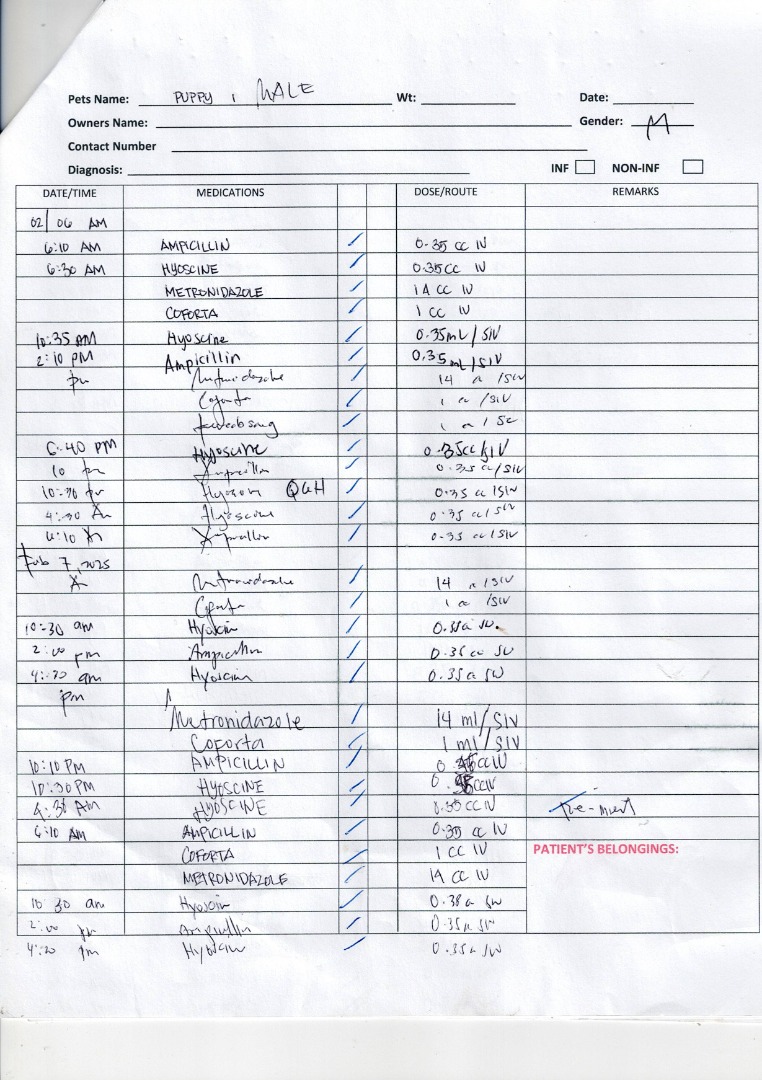 Pets Name: PUPPY 1 MALE Wt: Date:
Owners Name: Gender: M
Contact Number
Diagnosis: INF NON-INF
DATE/TIME MEDICATIONS DOSE/ROUTE REMARKS
02/06 AM
6:10 AM AMPICILLIN 0.35 CC IV
6:30 AM HYOSCINE 0.35CC IV
METRONIDAZOLE 14 CC IV
COFORTA 1 CC IV
10:35 AM Hyoscine 0.35mL/SIV
2:10 PM Ampicillin 0.35mL/SIV
pm Metronidazole 14 cc /SIV
Coforta 1 cc /SIV
1 cc / SC
6:40 PM Hyoscine 0.35cc/SIV
10 pm Ampicillin 0.35 cc/SIV
10:30 pm Hyoscine Q6H 0.35 cc/SIV
4:30 AM Hyoscine 0.35 cc/SIV
6:10 A Ampicillin 0.35 cc/SIV
Feb 7, 2025
A Metronidazole 14 cc/SIV
Coforta 1 cc /SIV
10:30 am Hyoscin 0.35cc SIV.
2:00 pm Ampicillin 0.35 cc SIV
4:30 am Hyoscin 0.35cc SIV
pm
Metronidazole 14 ml/SIV
Coforta 1 ml/SIV
10:10 PM AMPICILLIN 0.35CCIV
10:30 PM HYOSCINE 0.35CCIV
4:30 AM HYOSCINE 0.35 CC IV
6:10 AM AMPICILLIN 0.35 CC IV
COFORTA 1 CC IV
PATIENT'S BELONGINGS:
METRONIDAZOLE 14 CC IV
10:30 am Hyoscin 0.38cc SIV
2:00 pm Ampicillin 0.35cc SIV
4:30 pm Hyoscin 0.35cc SIV